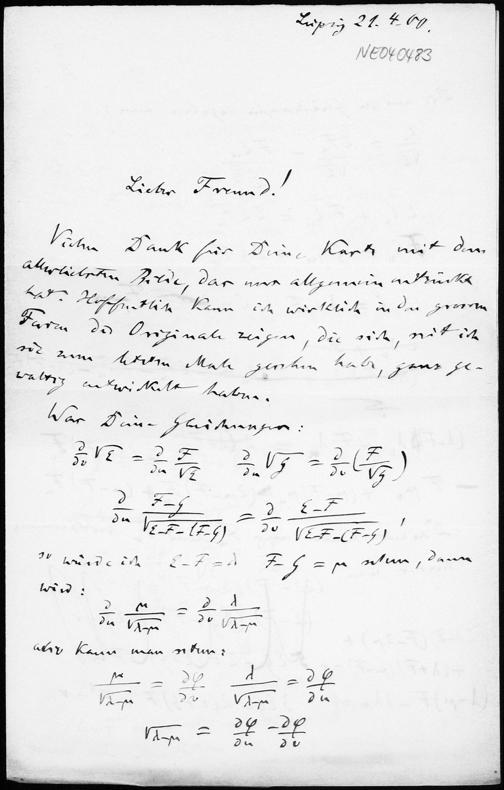 Leipzig 21.4.00.
NE040483
Lieber Freund!
Vielen Dank für Deine Karte mit dem
allerliebsten Bilde, das uns allgemein entzückt
hat. Hoffentlich kann ich wirklich in den grossen
Ferien die Originale zeigen, die sich, seit ich
sie zum letzten Male gesehen habe, ganz ge-
waltig entwickelt haben.
Was Deine Gleichungen:
∂/∂v √E = ∂/∂u F/√E  ∂/∂u √G = ∂/∂v (F/√G)
∂/∂u (F-G)/√(E-F-(F-G)) = ∂/∂v (E-F)/√(E-F-(F-G)),
so würde ich E-F=λ F-G=μ setzen, dann
wird:
∂/∂u μ/√(λ-μ) = ∂/∂v λ/√(λ-μ)
also kann man setzen:
μ/√(λ-μ) = ∂φ/∂v  λ/√(λ-μ) = ∂φ/∂u
√(λ-μ) = ∂φ/∂u - ∂φ/∂v